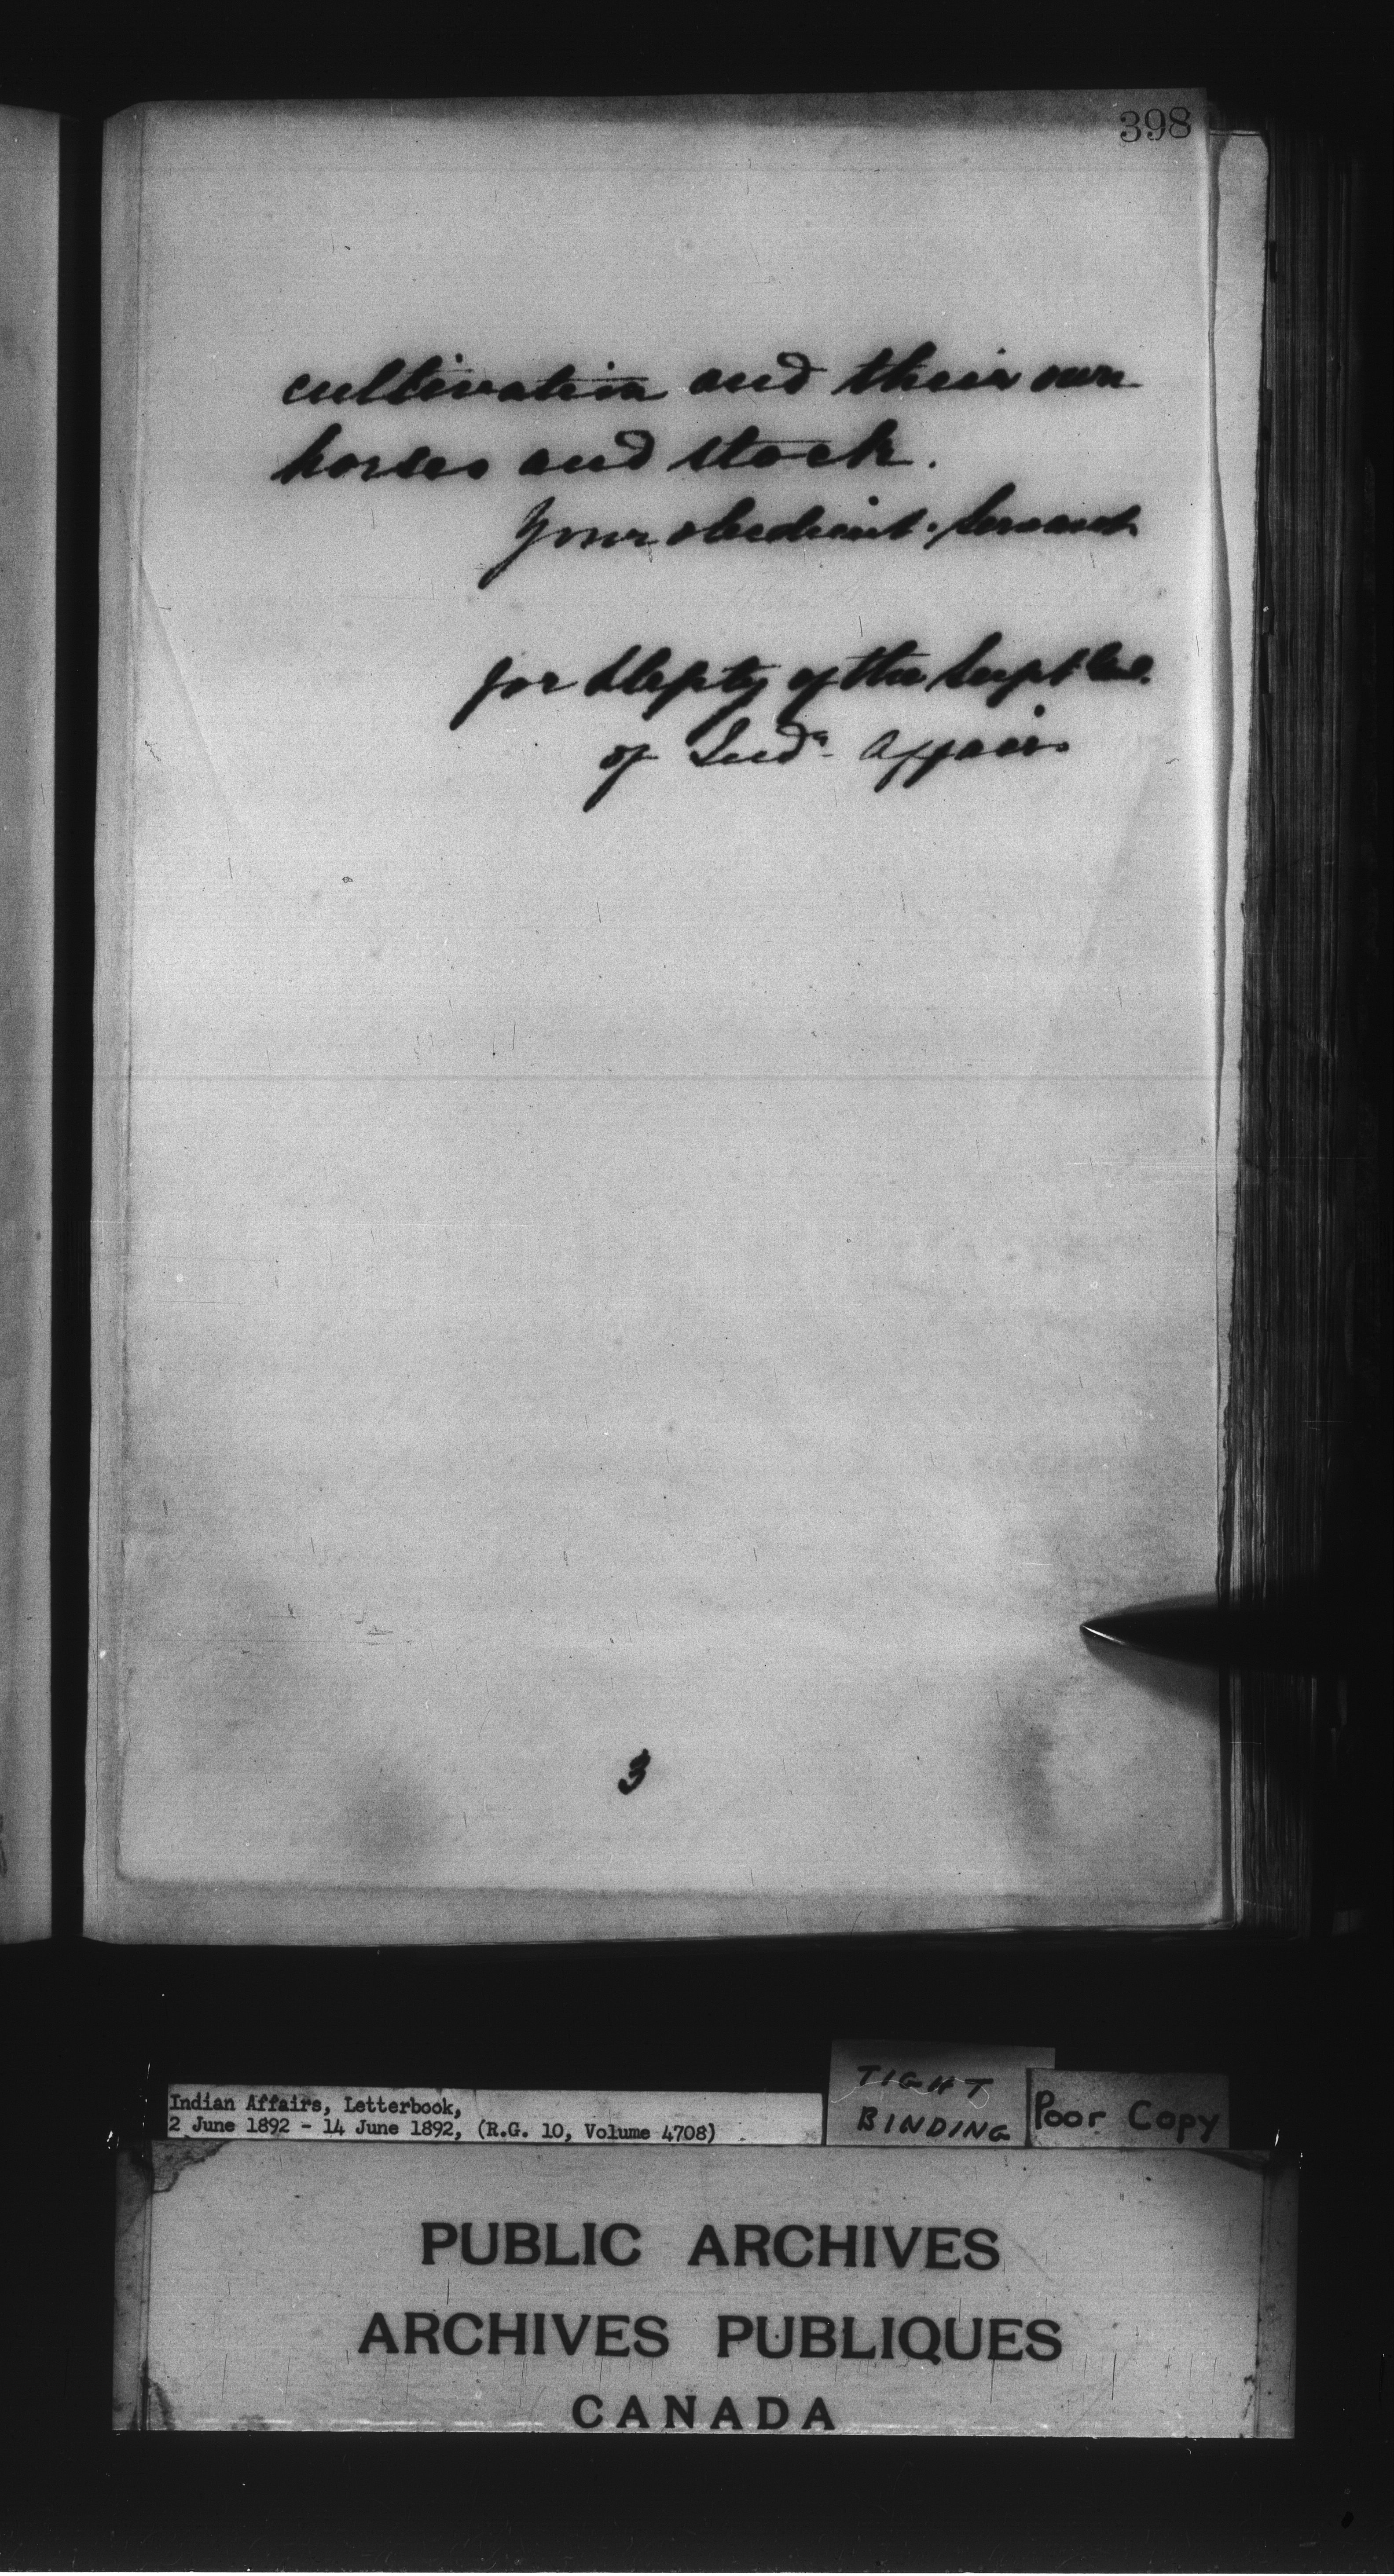 398
cultivation and their own
horses and stock.
Your obedient Servant
for Depty of the Supt Gnl.
of Indn Affairs
3
Indian Affairs, Letterbook,
2 June 1892 - 14 June 1892, (R.G. 10, Volume 4708)
TIGHT
BINDING
Poor Copy
PUBLIC ARCHIVES
ARCHIVES PUBLIQUES
CANADA